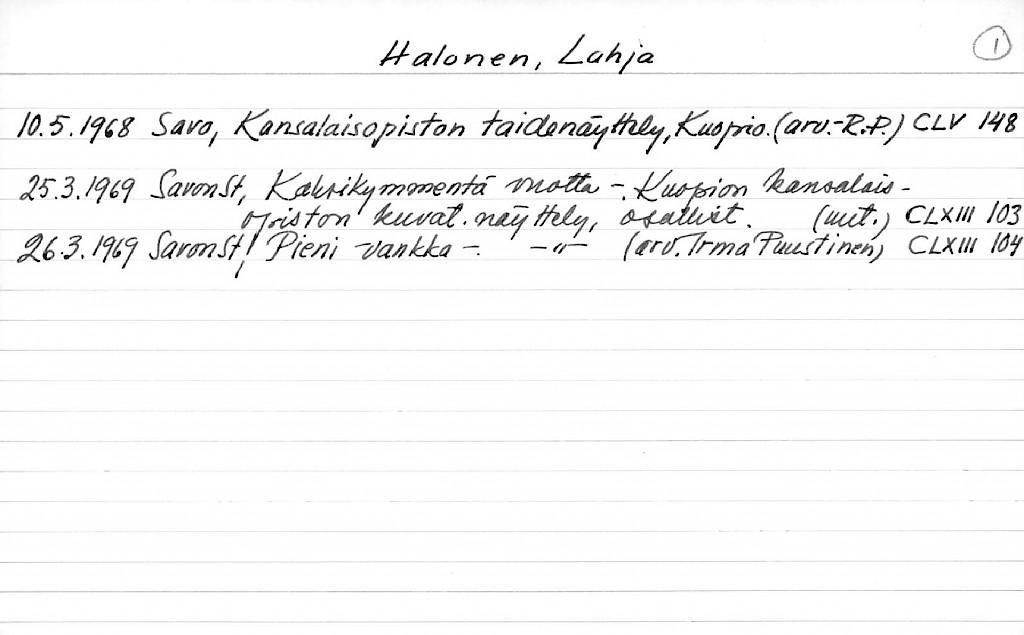 Halonen, Lahja
1
10.5.1968 Savo, Kansalaisopiston taidenäyttely, Kuopio. (arv.-R.P.) CLV 148
25.3.1969 SavonSt, Kaksikymmentä vuotta - Kuopion kansalais-
opiston kuvat. näyttely, osallist. (uut.) CLXIII 103
26.3.1969 SavonSt, Pieni vankka -. -"- (arv. Irma Puustinen) CLXIII 104